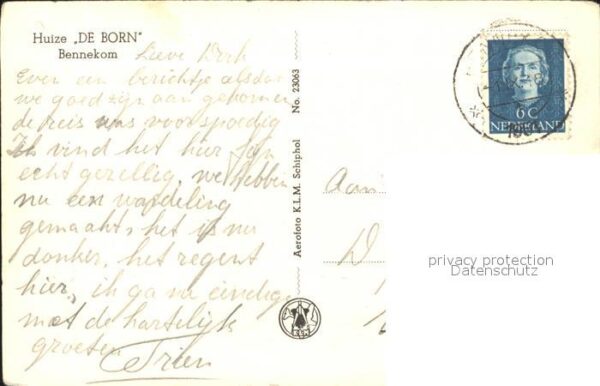 Huize „DE BORN"
Bennekom
Lieve Dirk
Even een berichtje alsdat
we goed zijn aan gekomen
de reis was voorspoedig
Ik vind het hier fijn
echt gezellig, we hebben
nu een wandeling
gemaakt, het is nu
donker, het regent
hier, ik ga nu eindige
met de hartelijk
groeten
Trien
Aerofoto K.L.M. Schiphol No. 23063
6 C
NEDERLAND
195
Aan
D
privacy protection
Datenschutz